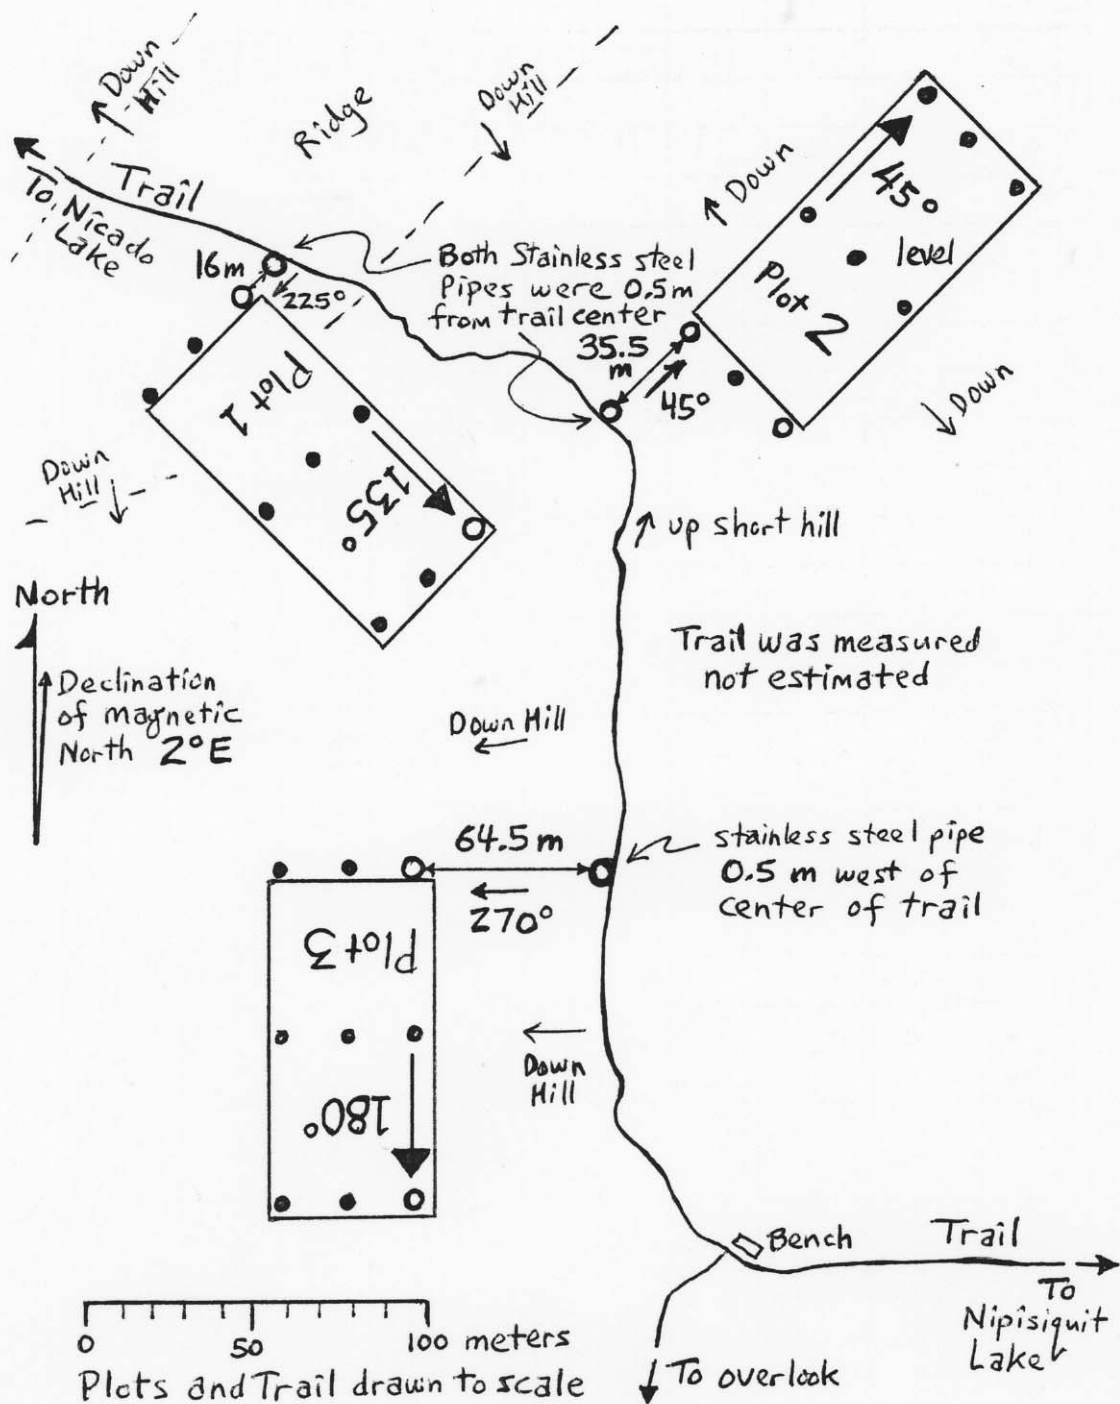 Down
Hill
Ridge
Down
Hill
Trail
To Nicado
Lake
16m
225°
Both Stainless steel
Pipes were 0.5m
from trail center
35.5
m
45°
Down
45°
level
Plox 2
Down
Plot 1
135°
Down
Hill
up short hill
North
Declination
of magnetic
North 2°E
Trail was measured
not estimated
Down Hill
64.5 m
270°
stainless steel pipe
0.5 m west of
center of trail
Plot 3
180°
Down
Hill
Bench
Trail
To
Nipisiquit
Lake
To overlook
0 50 100 meters
Plots and Trail drawn to scale